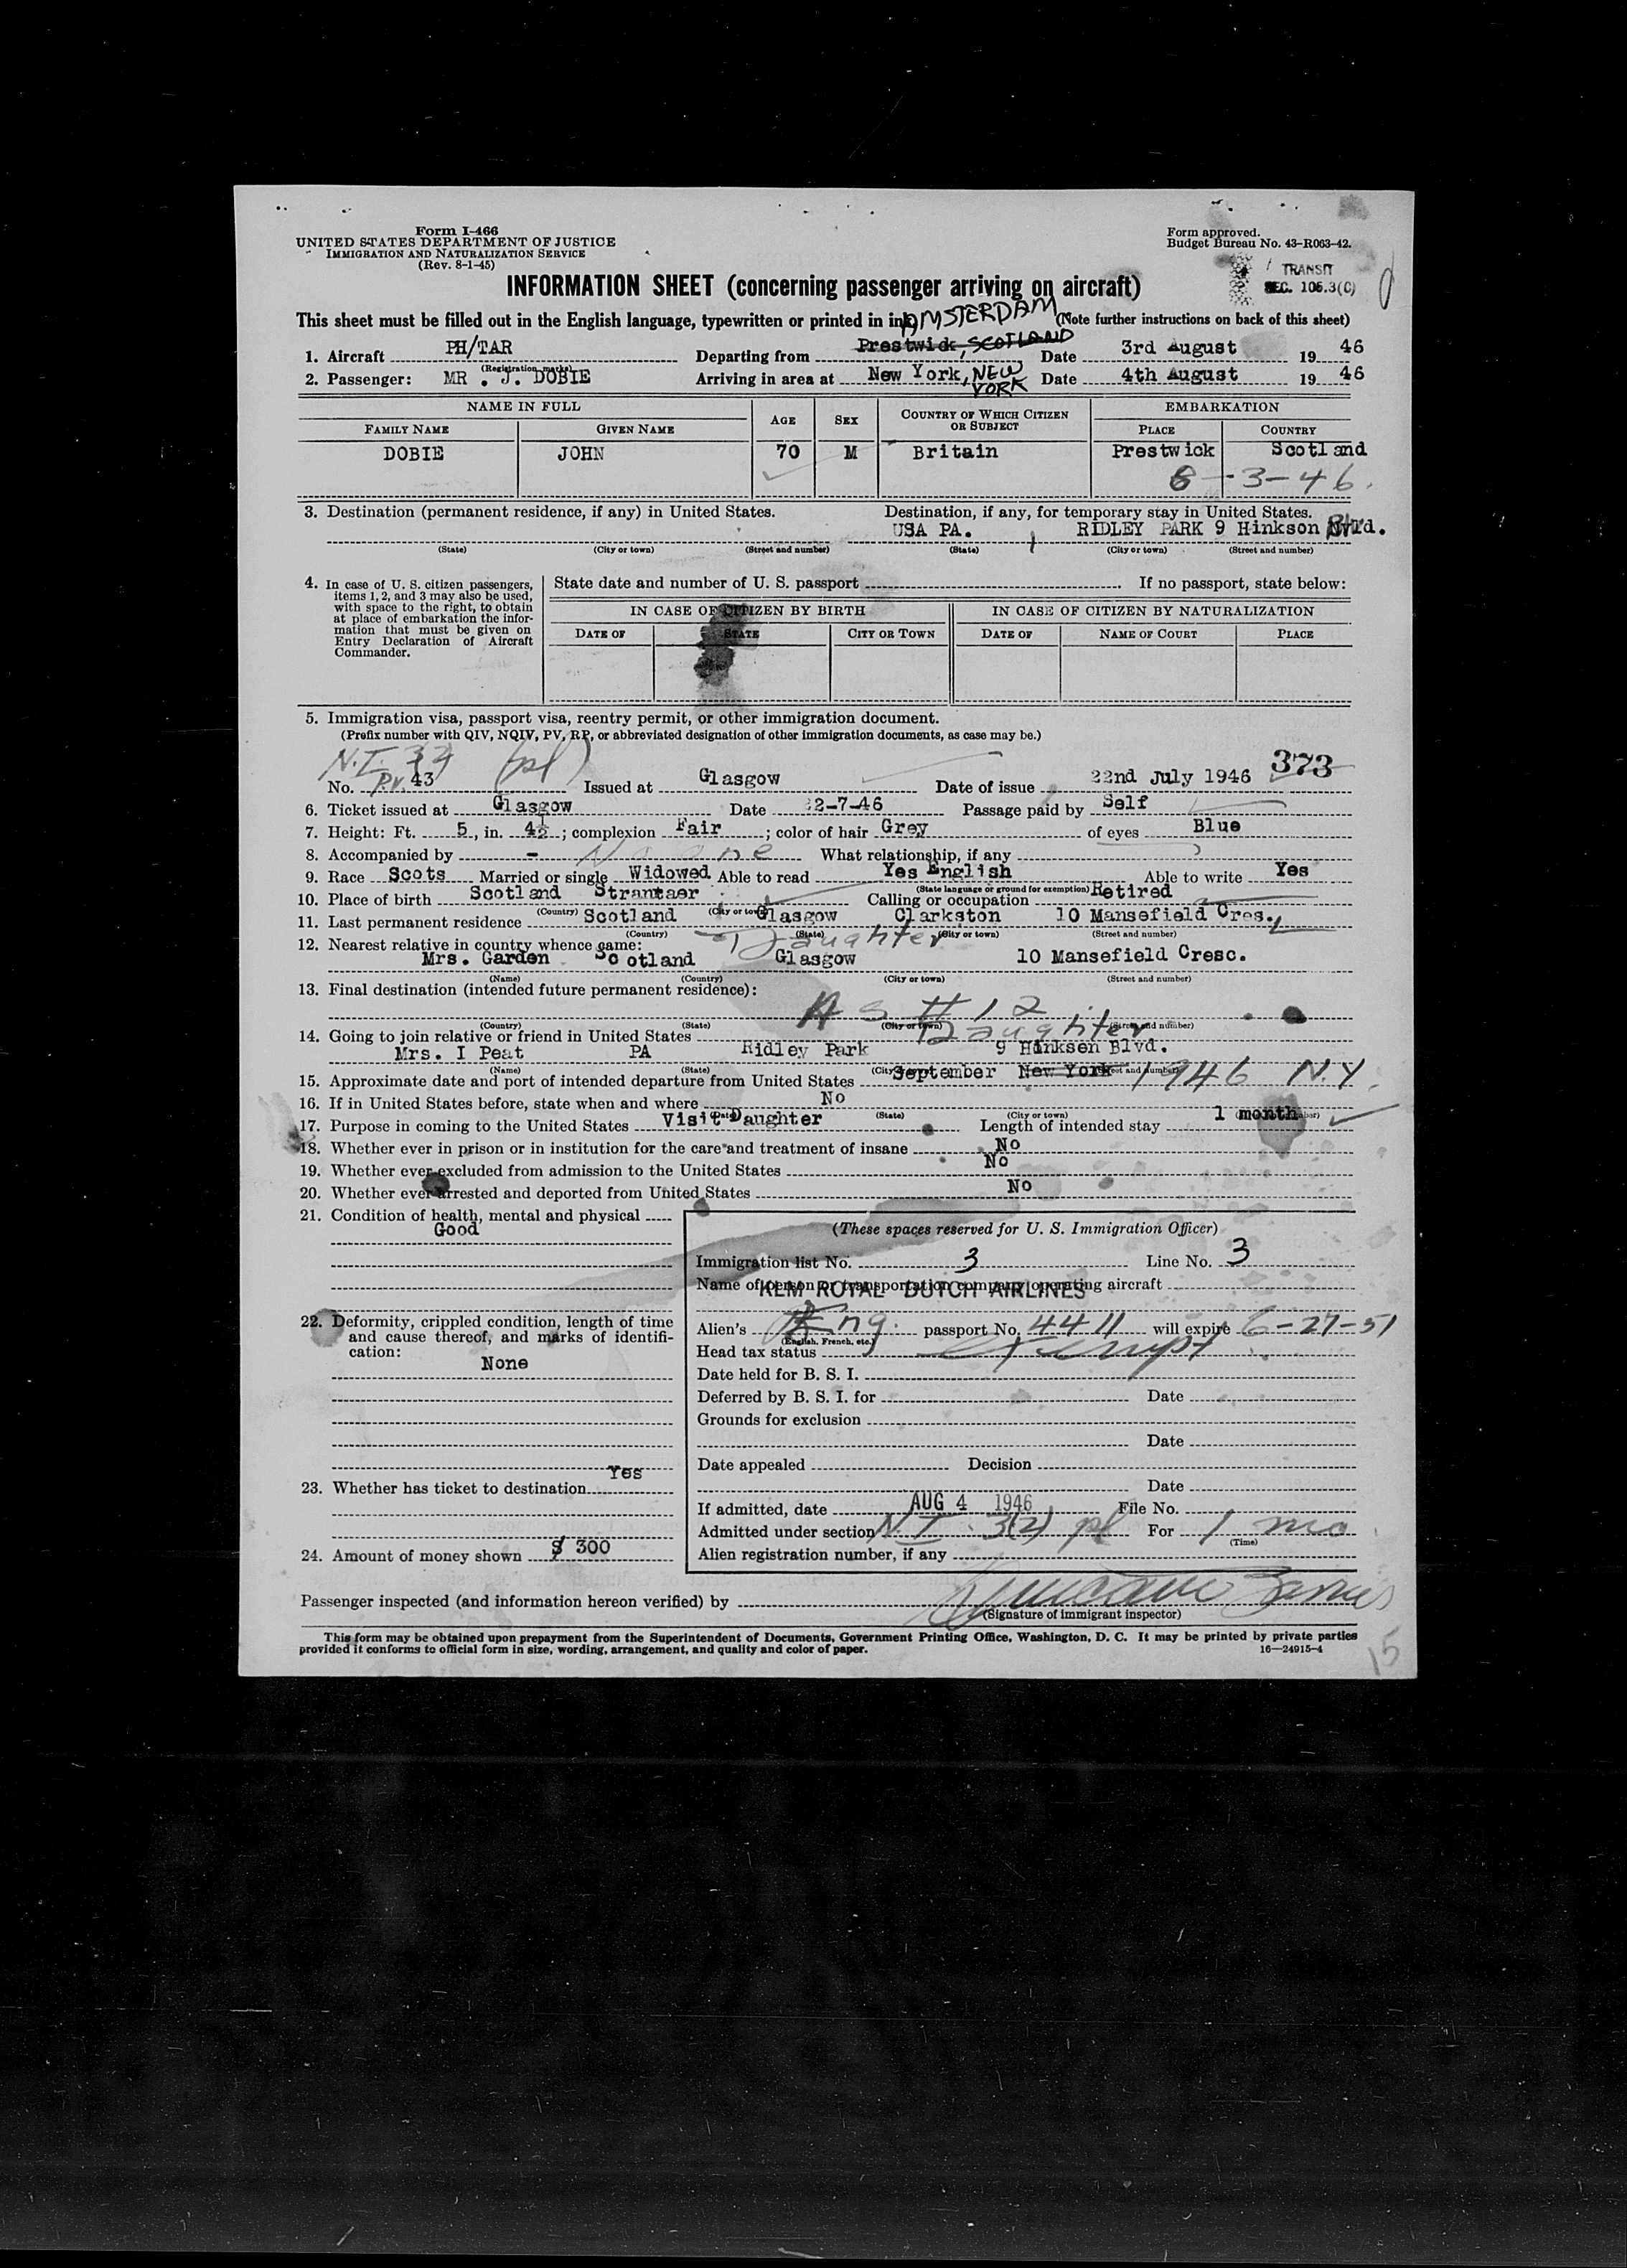 Form I-466
UNITED STATES DEPARTMENT OF JUSTICE
IMMIGRATION AND NATURALIZATION SERVICE
(Rev. 8-1-45)
Form approved.
Budget Bureau No. 43-R063-42.
TRANSIT
SEC. 105.3(C)
INFORMATION SHEET (concerning passenger arriving on aircraft)
This sheet must be filled out in the English language, typewritten or printed in ink. (Note further instructions on back of this sheet)
AMSTERDAM
1. Aircraft PH/TAR Departing from Prestwick, SCOTLAND Date 3rd August 19 46
(Registration marks)
2. Passenger: MR . J. DOBIE Arriving in area at New York, NEW YORK Date 4th August 19 46
NAME IN FULL AGE SEX COUNTRY OF WHICH CITIZEN OR SUBJECT EMBARKATION
FAMILY NAME GIVEN NAME PLACE COUNTRY
DOBIE JOHN 70 M Britain Prestwick Scotland
8-3-46.
3. Destination (permanent residence, if any) in United States. Destination, if any, for temporary stay in United States.
USA PA. RIDLEY PARK 9 Hinkson Blvd.
(State) (City or town) (Street and number) (State) (City or town) (Street and number)
4. In case of U. S. citizen passengers, items 1, 2, and 3 may also be used, with space to the right, to obtain at place of embarkation the information that must be given on Entry Declaration of Aircraft Commander.
State date and number of U. S. passport If no passport, state below:
IN CASE OF CITIZEN BY BIRTH IN CASE OF CITIZEN BY NATURALIZATION
DATE OF STATE CITY OR TOWN DATE OF NAME OF COURT PLACE
5. Immigration visa, passport visa, reentry permit, or other immigration document.
(Prefix number with QIV, NQIV, PV, RP, or abbreviated designation of other immigration documents, as case may be.)
N.I. (pl) 373
No. P.V. 43 Issued at Glasgow Date of issue 22nd July 1946
6. Ticket issued at Glasgow Date 22-7-46 Passage paid by Self
7. Height: Ft. 5, in. 4½; complexion Fair; color of hair Grey of eyes Blue
8. Accompanied by - No one What relationship, if any
9. Race Scots Married or single Widowed Able to read Yes English Able to write Yes
(State language or ground for exemption)
10. Place of birth Scotland Strantaer Calling or occupation Retired
(Country) (City or town)
11. Last permanent residence Scotland Glasgow Clarkston 10 Mansefield Cres.
(Country) (State) (City or town) (Street and number)
12. Nearest relative in country whence came: Daughter
Mrs. Garden Scotland Glasgow 10 Mansefield Cresc.
(Name) (Country) (City or town) (Street and number)
13. Final destination (intended future permanent residence):
AS #12
(Country) (State) (City or town) (Street and number)
14. Going to join relative or friend in United States Daughter
Mrs. I Peat PA Ridley Park 9 Hinksen Blvd.
(Name) (State) (City or town) (Street and number)
15. Approximate date and port of intended departure from United States September New York 1946 N.Y.
16. If in United States before, state when and where No
(Date) (State) (City or town) (Street and number)
17. Purpose in coming to the United States Visit Daughter Length of intended stay 1 month
18. Whether ever in prison or in institution for the care and treatment of insane No
19. Whether ever excluded from admission to the United States No
20. Whether ever arrested and deported from United States No
21. Condition of health, mental and physical
Good
22. Deformity, crippled condition, length of time and cause thereof, and marks of identification:
None
23. Whether has ticket to destination Yes
24. Amount of money shown $ 300
(These spaces reserved for U. S. Immigration Officer)
Immigration list No. 3 Line No. 3
Name of person or transportation company operating aircraft
KLM ROYAL DUTCH AIRLINES
Alien's Eng. passport No. 4411 will expire 6-27-51
(English, French, etc.)
Head tax status exempt
Date held for B. S. I.
Deferred by B. S. I. for Date
Grounds for exclusion
Date
Date appealed Decision
Date
If admitted, date AUG 4 1946 File No.
Admitted under section N.I. 3(2) pl For 1 mo.
(Time)
Alien registration number, if any
Passenger inspected (and information hereon verified) by
(Signature of immigrant inspector)
This form may be obtained upon prepayment from the Superintendent of Documents, Government Printing Office, Washington, D. C. It may be printed by private parties
provided it conforms to official form in size, wording, arrangement, and quality and color of paper. 16—24915-4
15